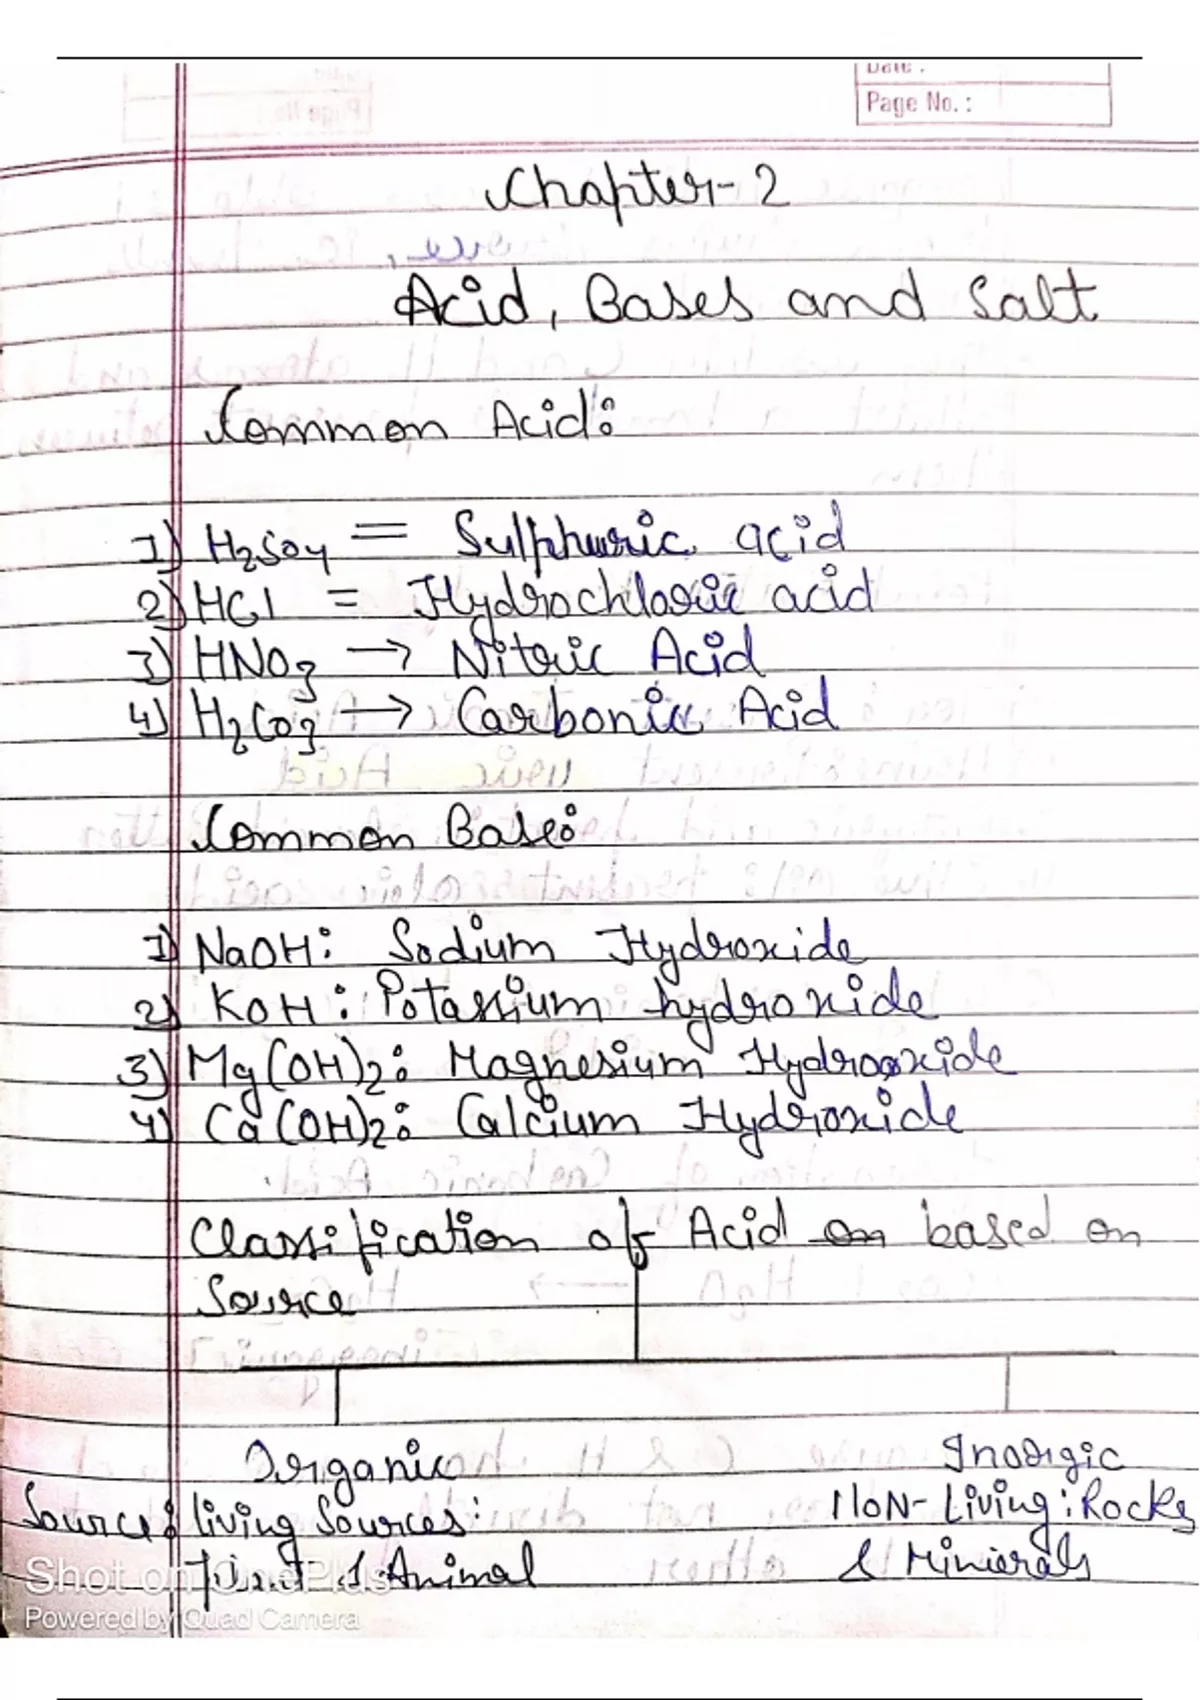 Date :
Page No. :
Chapter-2
Acid, Bases and Salt
Common Acid:
1) H2SO4 = Sulphuric acid
2) HCl = Hydrochloric acid
3) HNO3 → Nitric Acid
4) H2CO3 → Carbonic Acid
Common Base:
1) NaOH: Sodium Hydroxide
2) KOH: Potassium hydroxide
3) Mg(OH)2: Magnesium Hydroxide
4) Ca(OH)2: Calcium Hydroxide
Classification of Acid on based on
Source
Organic Inorgic
Source: living Sources: NON-Living: Rocks
Plant & Animal & Minierals
Shot on OnePlus
Powered by Quad Camera